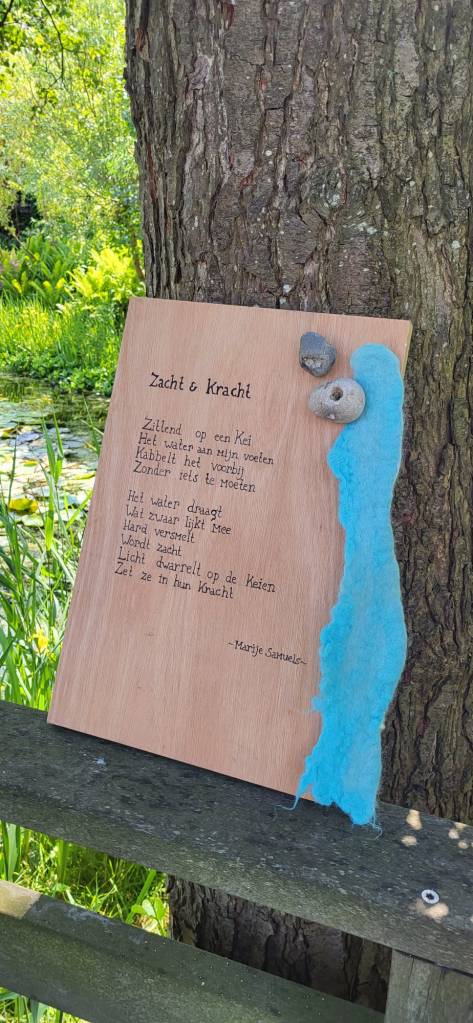 Zacht & Kracht
Zittend op een Kei
Het water aan mijn voeten
Kabbelt het voorbij
Zonder iets te moeten
Het water draagt
Wat zwaar lijkt mee
Hard versmelt
Wordt zacht
Licht dwarrelt op de Keien
Zet ze in hun Kracht
~Marije Samuels~